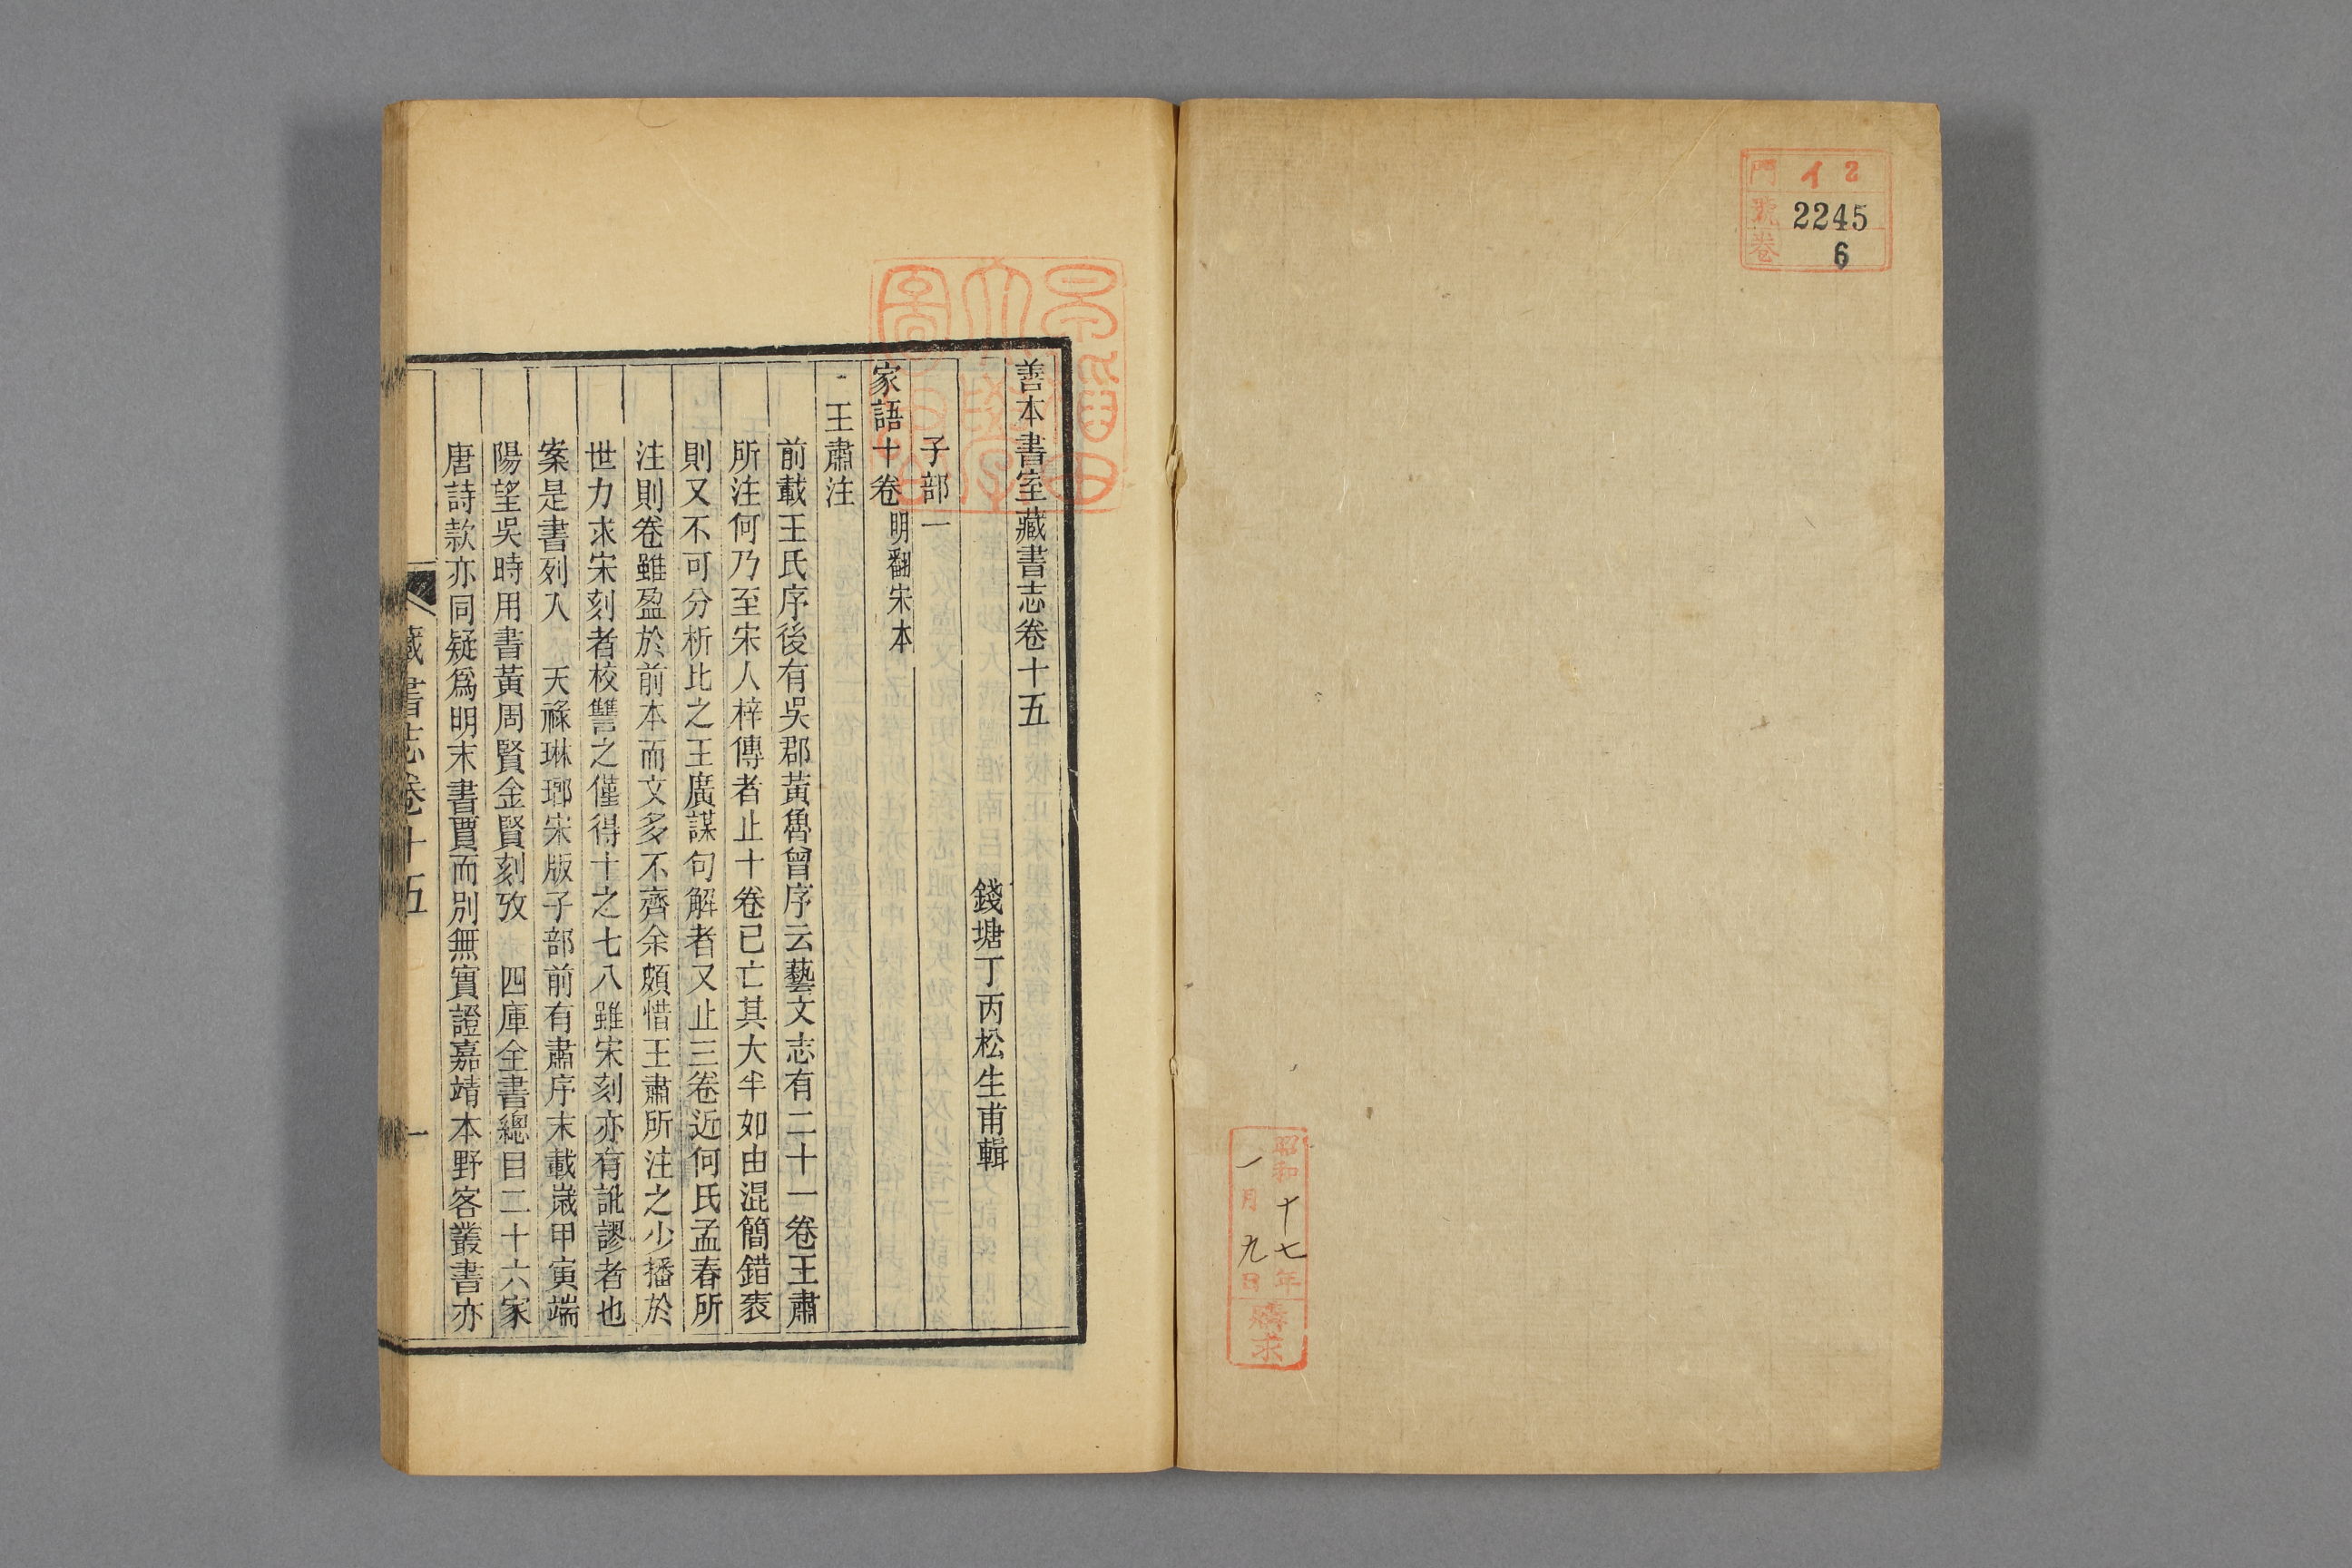 門 イ2
號 2245
卷 6
昭和十七年
一月九日
購求
善本書室藏書志卷十五
錢塘丁丙松生甫輯
子部一
家語十卷 明翻宋本
王肅注
前載王氏序後有吳郡黃魯曾序云藝文志有二十一卷王肅
所注何乃至宋人梓傳者止十卷已亡其大半如由混簡錯袠
則又不可分析比之王廣謀句解者又止三卷近何氏孟春所
注則卷雖盈於前本而文多不齊余頗惜王肅所注之少播於
世力求宋刻者校讐之僅得十之七八雖宋刻亦有訛謬者也
案是書列入 天祿琳瑯宋版子部前有肅序末載嵗甲寅端
陽望吳時用書黃周賢金賢刻攷 四庫全書總目二十六家
唐詩款亦同疑爲明末書賈而別無實證嘉靖本野客叢書亦
藏書志卷十五
一